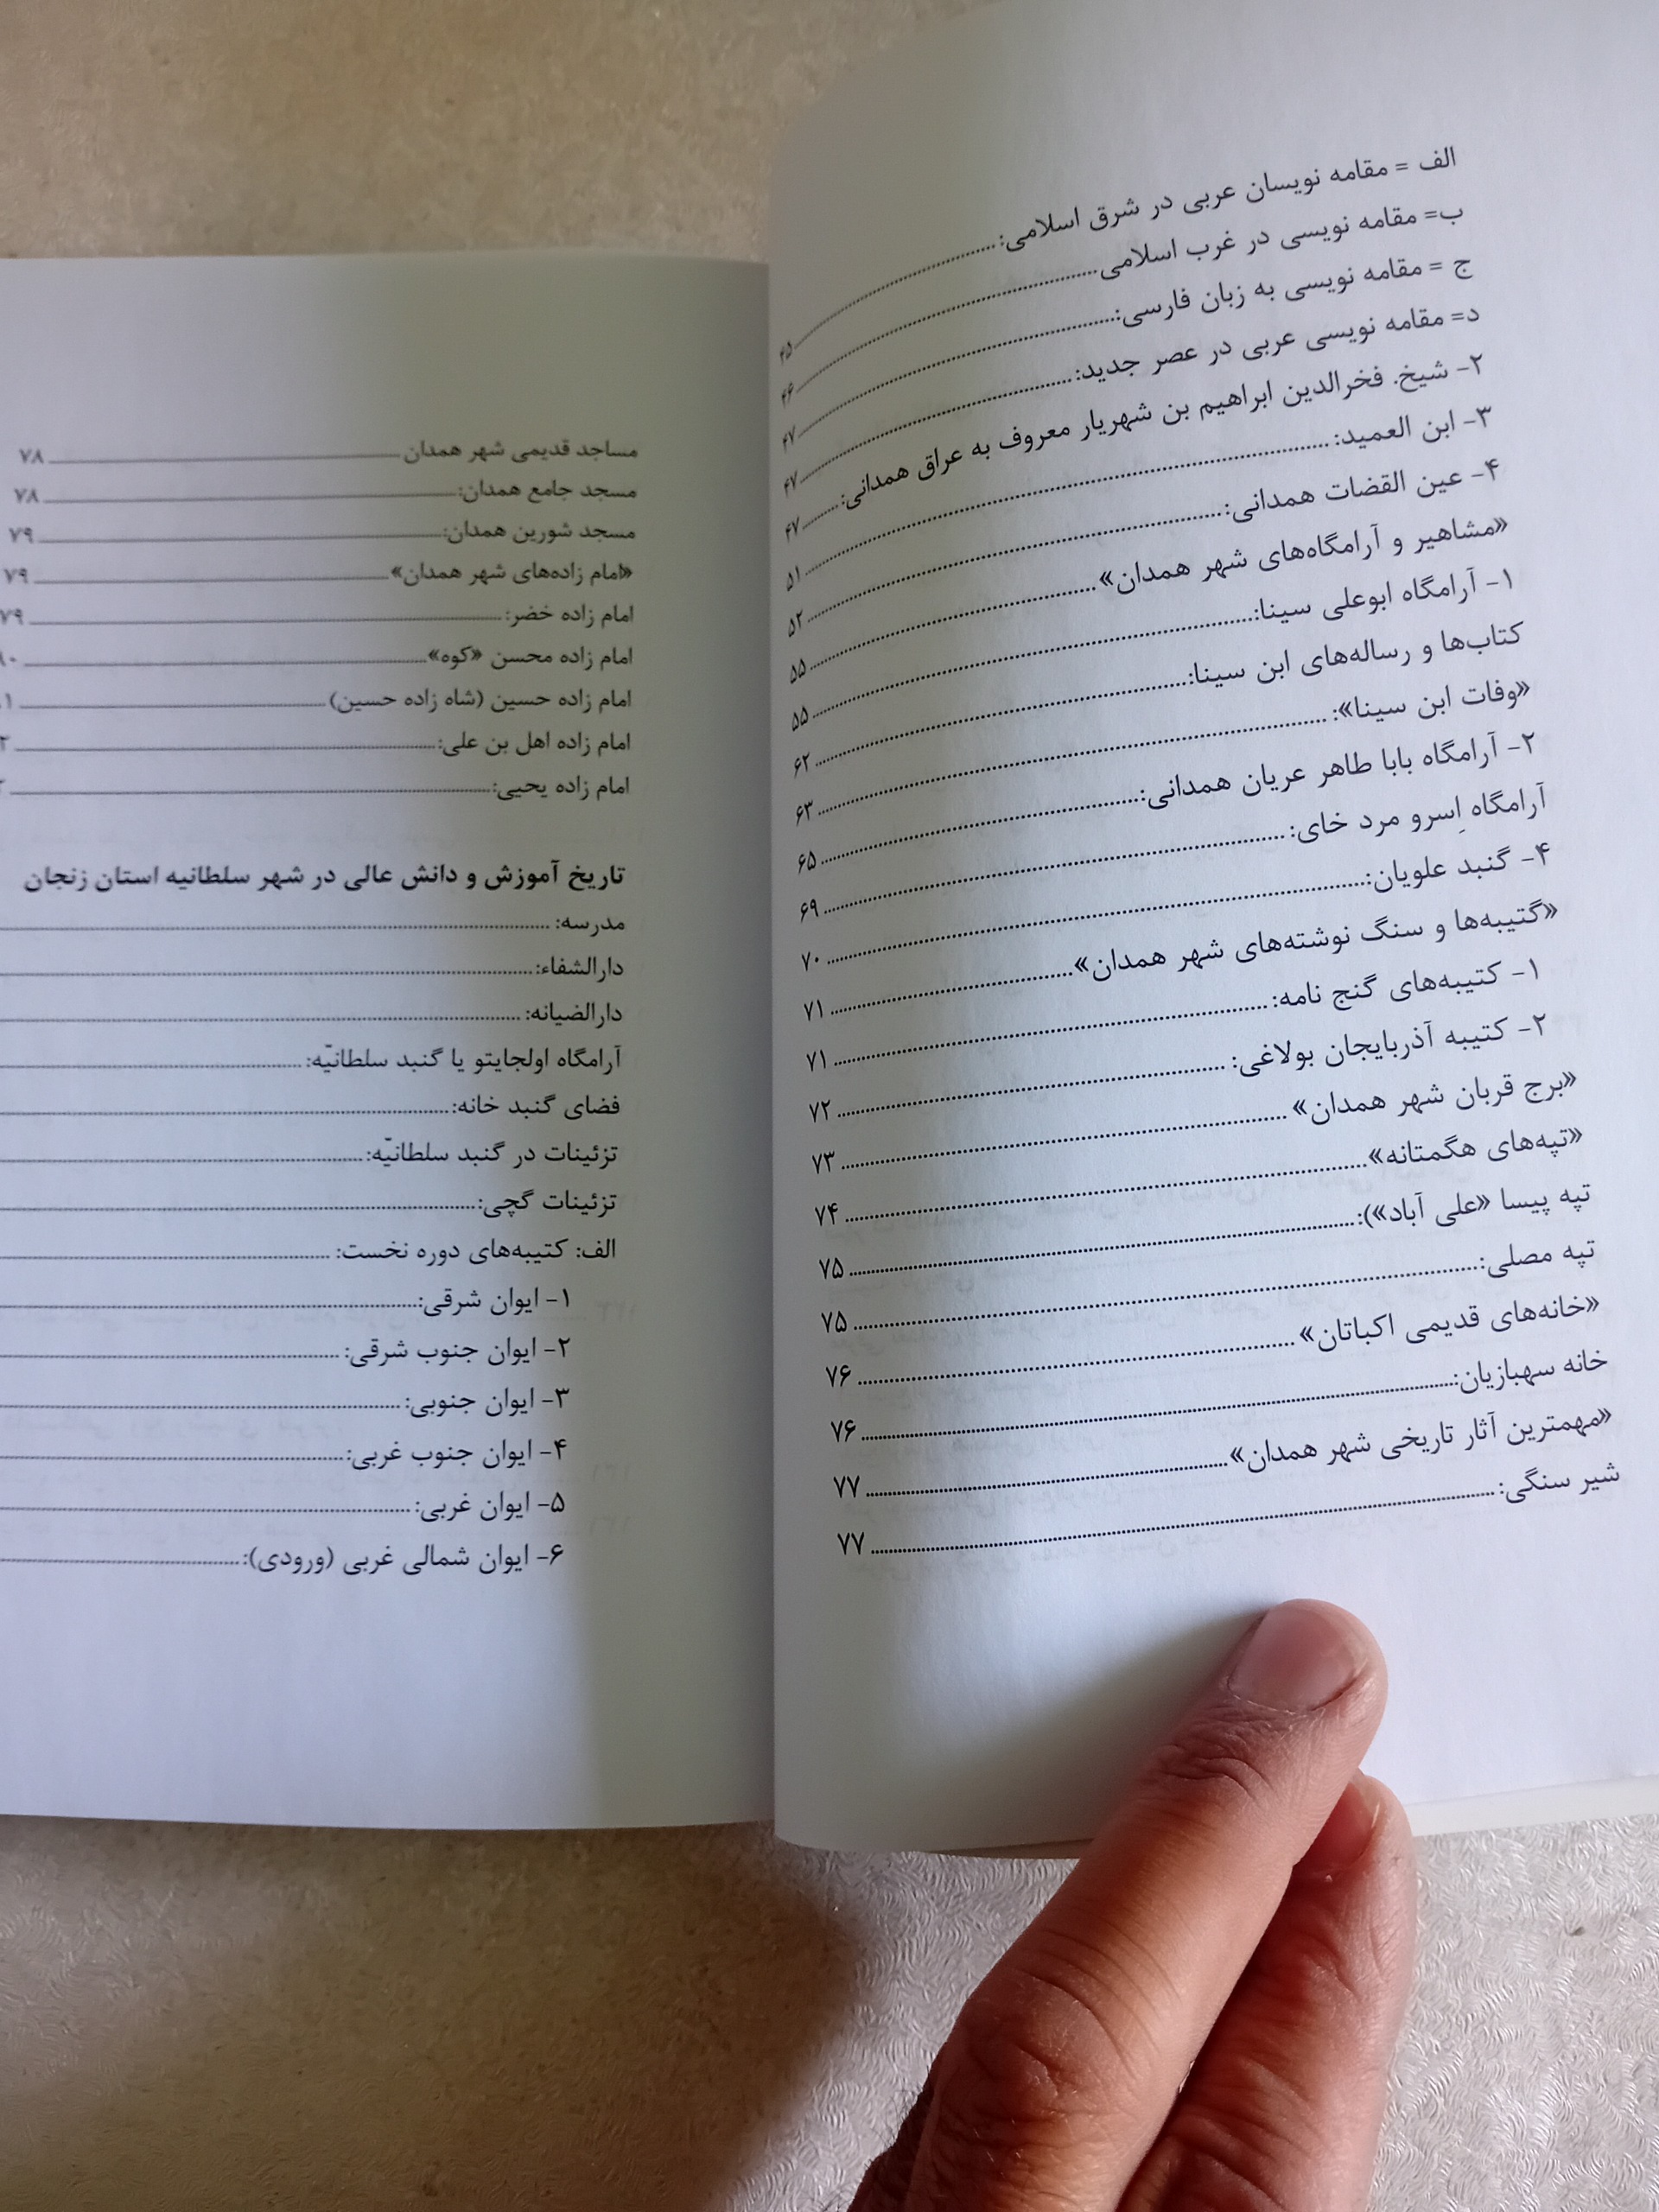 الف = مقامه نویسان عربی در شرق اسلامی: ۴۵
ب= مقامه نویسی در غرب اسلامی ۴۶
ج = مقامه نویسی به زبان فارسی: ۴۷
د= مقامه نویسی عربی در عصر جدید: ۴۷
۲- شیخ. فخرالدین ابراهیم بن شهریار معروف به عراق همدانی: ۴۷
۳- ابن العمید: ۵۱
۴- عین القضات همدانی: ۵۲
«مشاهیر و آرامگاه‌های شهر همدان» ۵۵
۱- آرامگاه ابوعلی سینا: ۵۵
کتاب‌ها و رساله‌های ابن سینا: ۶۲
«وفات ابن سینا»: ۶۳
۲- آرامگاه بابا طاهر عریان همدانی: ۶۵
آرامگاه اِسرو مرد خای: ۶۹
۴- گنبد علویان: ۷۰
«گتیبه‌ها و سنگ نوشته‌های شهر همدان» ۷۱
۱- کتیبه‌های گنج نامه: ۷۱
۲- کتیبه آذربایجان بولاغی: ۷۲
«برج قربان شهر همدان» ۷۳
«تپه‌های هگمتانه» ۷۴
تپه پیسا «علی آباد»): ۷۵
تپه مصلی: ۷۵
«خانه‌های قدیمی اکباتان» ۷۶
خانه سهبازیان: ۷۶
«مهمترین آثار تاریخی شهر همدان» ۷۷
شیر سنگی: ۷۷
مساجد قدیمی شهر همدان ۷۸
مسجد جامع همدان: ۷۸
مسجد شورین همدان: ۷۹
«امام زاده‌های شهر همدان» ۷۹
امام زاده خضر: ۷۹
امام زاده محسن «کوه»
امام زاده حسین (شاه زاده حسین)
امام زاده اهل بن علی:
امام زاده یحیی:
تاریخ آموزش و دانش عالی در شهر سلطانیه استان زنجان
مدرسه:
دارالشفاء:
دارالضیانه:
آرامگاه اولجایتو یا گنبد سلطانیّه:
فضای گنبد خانه:
تزئینات در گنبد سلطانیّه:
تزئینات گچی:
الف: کتیبه‌های دوره نخست:
۱- ایوان شرقی:
۲- ایوان جنوب شرقی:
۳- ایوان جنوبی:
۴- ایوان جنوب غربی:
۵- ایوان غربی:
۶- ایوان شمالی غربی (ورودی):